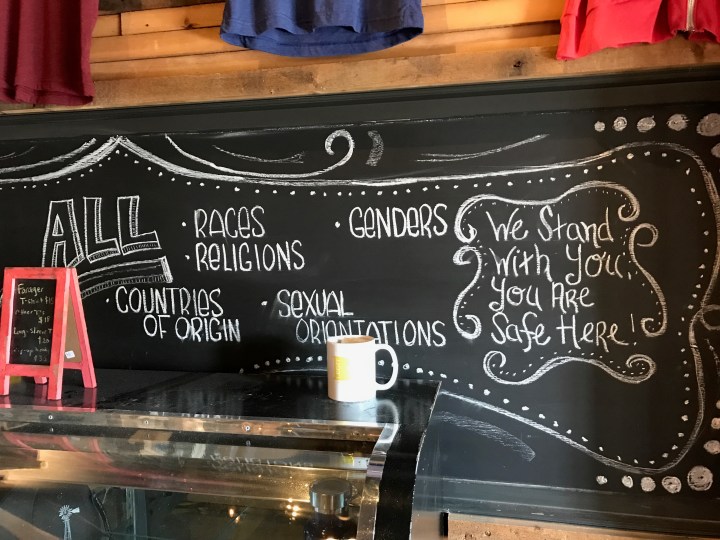 ALL
· RACES
· RELIGIONS
· GENDERS
· COUNTRIES
OF ORIGIN
· SEXUAL
ORIENTATIONS
We Stand
With You,
You Are
Safe Here!
Forager